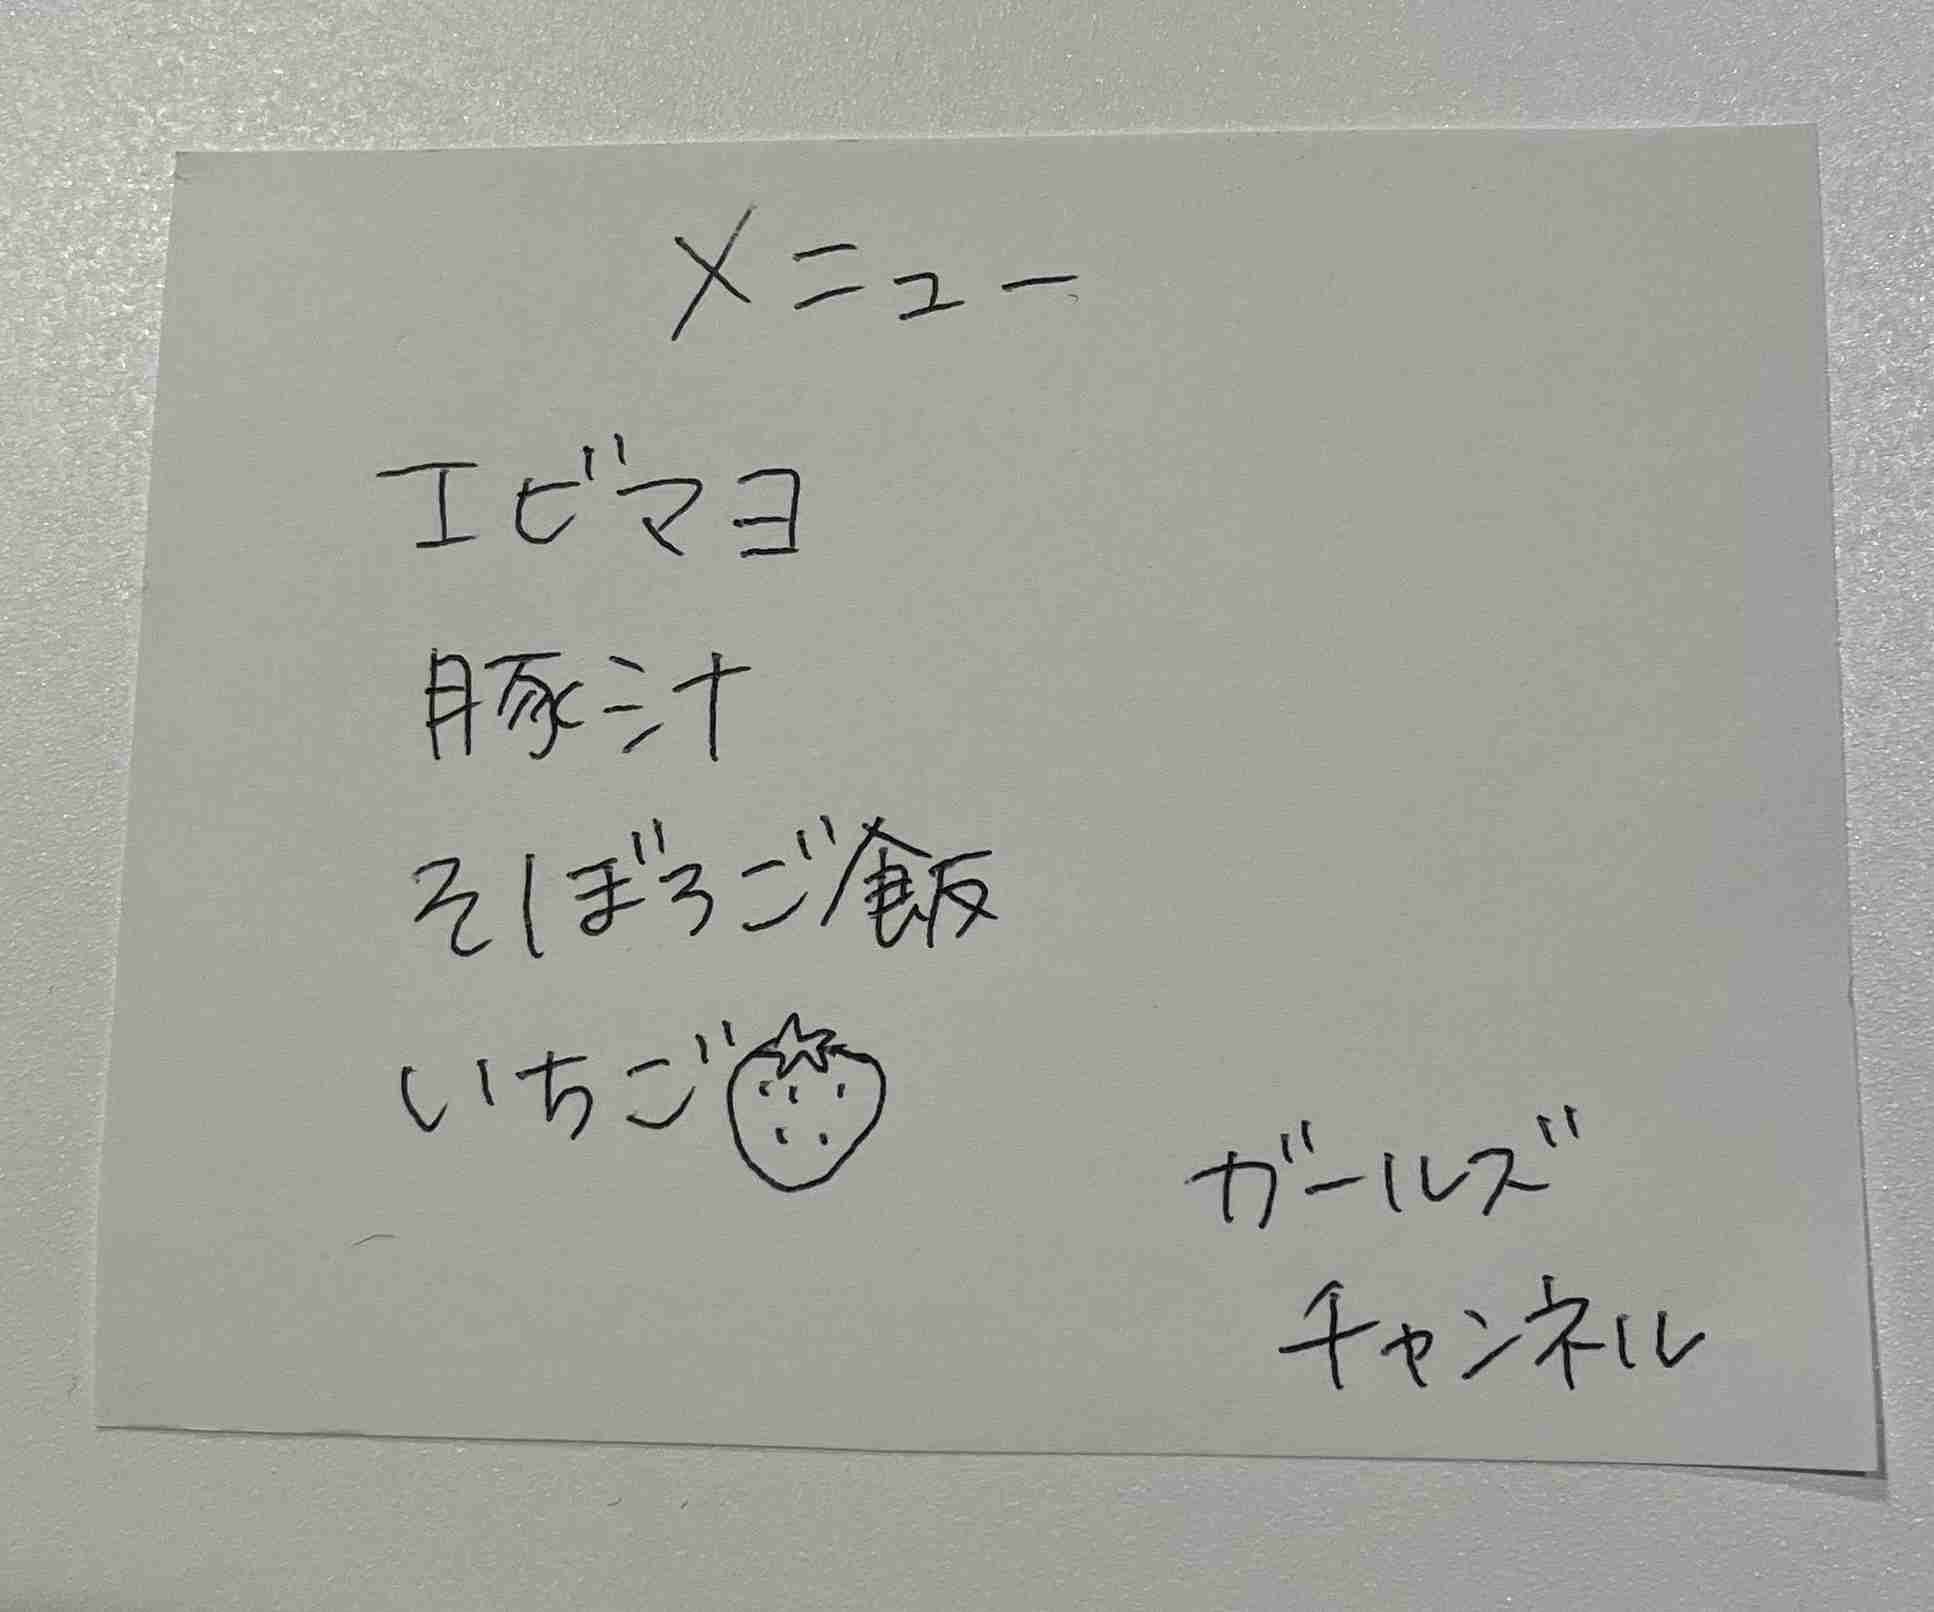 メニュー
エビマヨ
豚汁
そぼろご飯
いちご
ガールズ
チャンネル